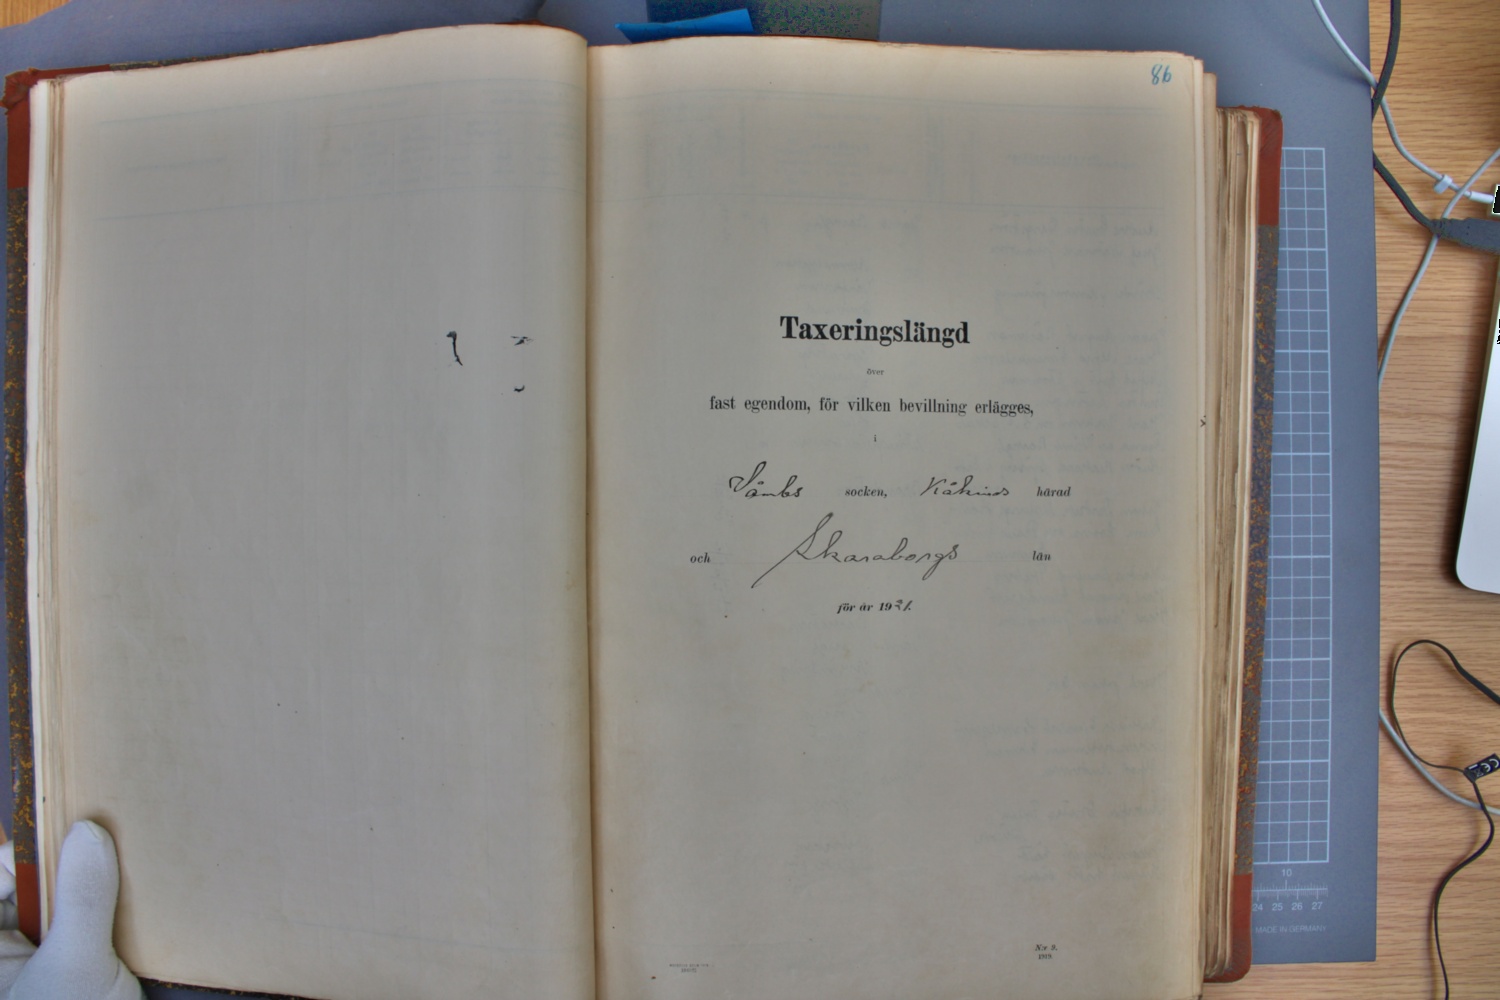 86
Taxeringslängd
över
fast egendom, för vilken bevillning erlägges,
i
Våmbs socken, Kåkinds härad
och Skaraborgs län
för år 1921.
N:r 9.
1919.
10
24 25 26 27
MADE IN GERMANY
CE